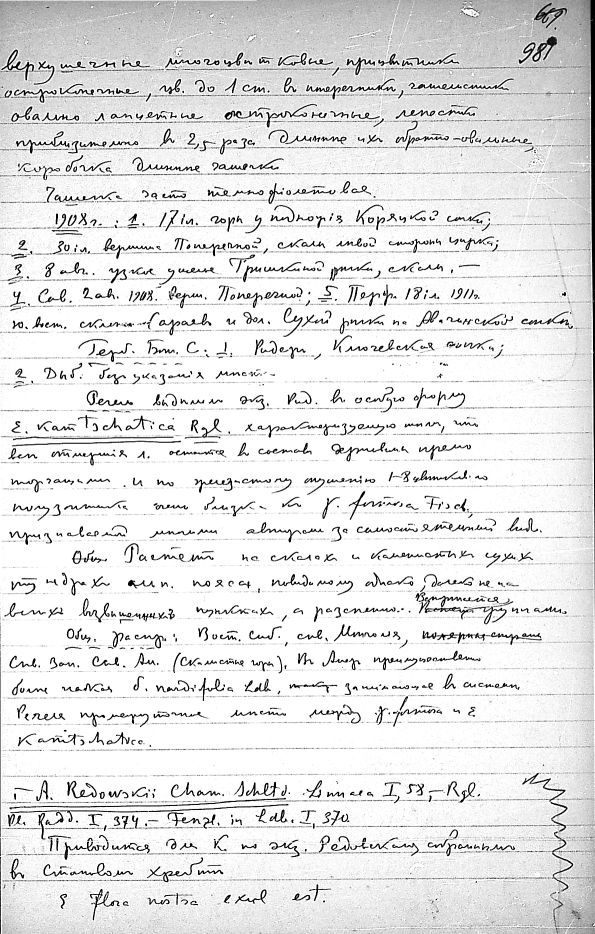 669.
981
верхушечные многоцветковые, прицветники
остроконечные, цв. до 1 ст. въ поперечнике, чашелистики
овально ланцетные остроконечные, лепестки
приблизительно въ 2,5 раза длиннее ихъ обратно-овальные,
коробочка длиннее чашечки
Чашечка часто темнофиолетовая.
1908г.: 1. 17 іл. горы у подножія Коряцкой сопки;
2. 30 іл. вершина Поперечной, скалы левой стороны цирка;
3. 8 авг. узкое ущелье Тришкиной речки, скалы. —
4. Сав. 2 авг. 1908. верш. Поперечной; 5. Перф. 18 іл. 1911г.
ю. вост. склонъ Сараев и дол. Сухой речки на Авачинской сопке.
Герб. Бот. С: 1. Ридеръ, Ключевская сопка;
2. Дыб. безъ указанія места
Регель выделилъ экз. Рид. въ особую форму
ε. Kamtschatica Rgl. характеризуемую темъ, что
все отмершія л. остаются въ составе дерновины прямо
торчащими. и по железистому опушению 1-8 цветков.
полузонтика очень близка къ γ. formosa Fisch.,
признаваемой многими авторами за самостоятельный видъ.
Общ. Растетъ на скалахъ и каменистыхъ сухихъ
тундрахъ альп. пояса, повидимому однако, далеко не на
Встречается
всехъ возвышенныхъ пунктахъ, а разсеянно. группами
Общ. распр.: Вост. Сиб., сев. Монголія, полярныя страны
Сев. Зап. Сев. Ам. (Скалистые горы). Въ Анор преимущественно
более подкая δ. nardifolia Ldb., занимающая въ системе
Регеля промежуточное место между γ. formosa и ε
Kamtschatica.
— A. Redowskii Cham. Schltd. Linnaea I, 58, — Rgl.
Pl. Radd. I, 374. — Fenzl. in Ldb. I, 370
Приводится для К. по экз. Редовскаго собраннымъ
въ Становомъ хребте
E flora nostra excl. est.